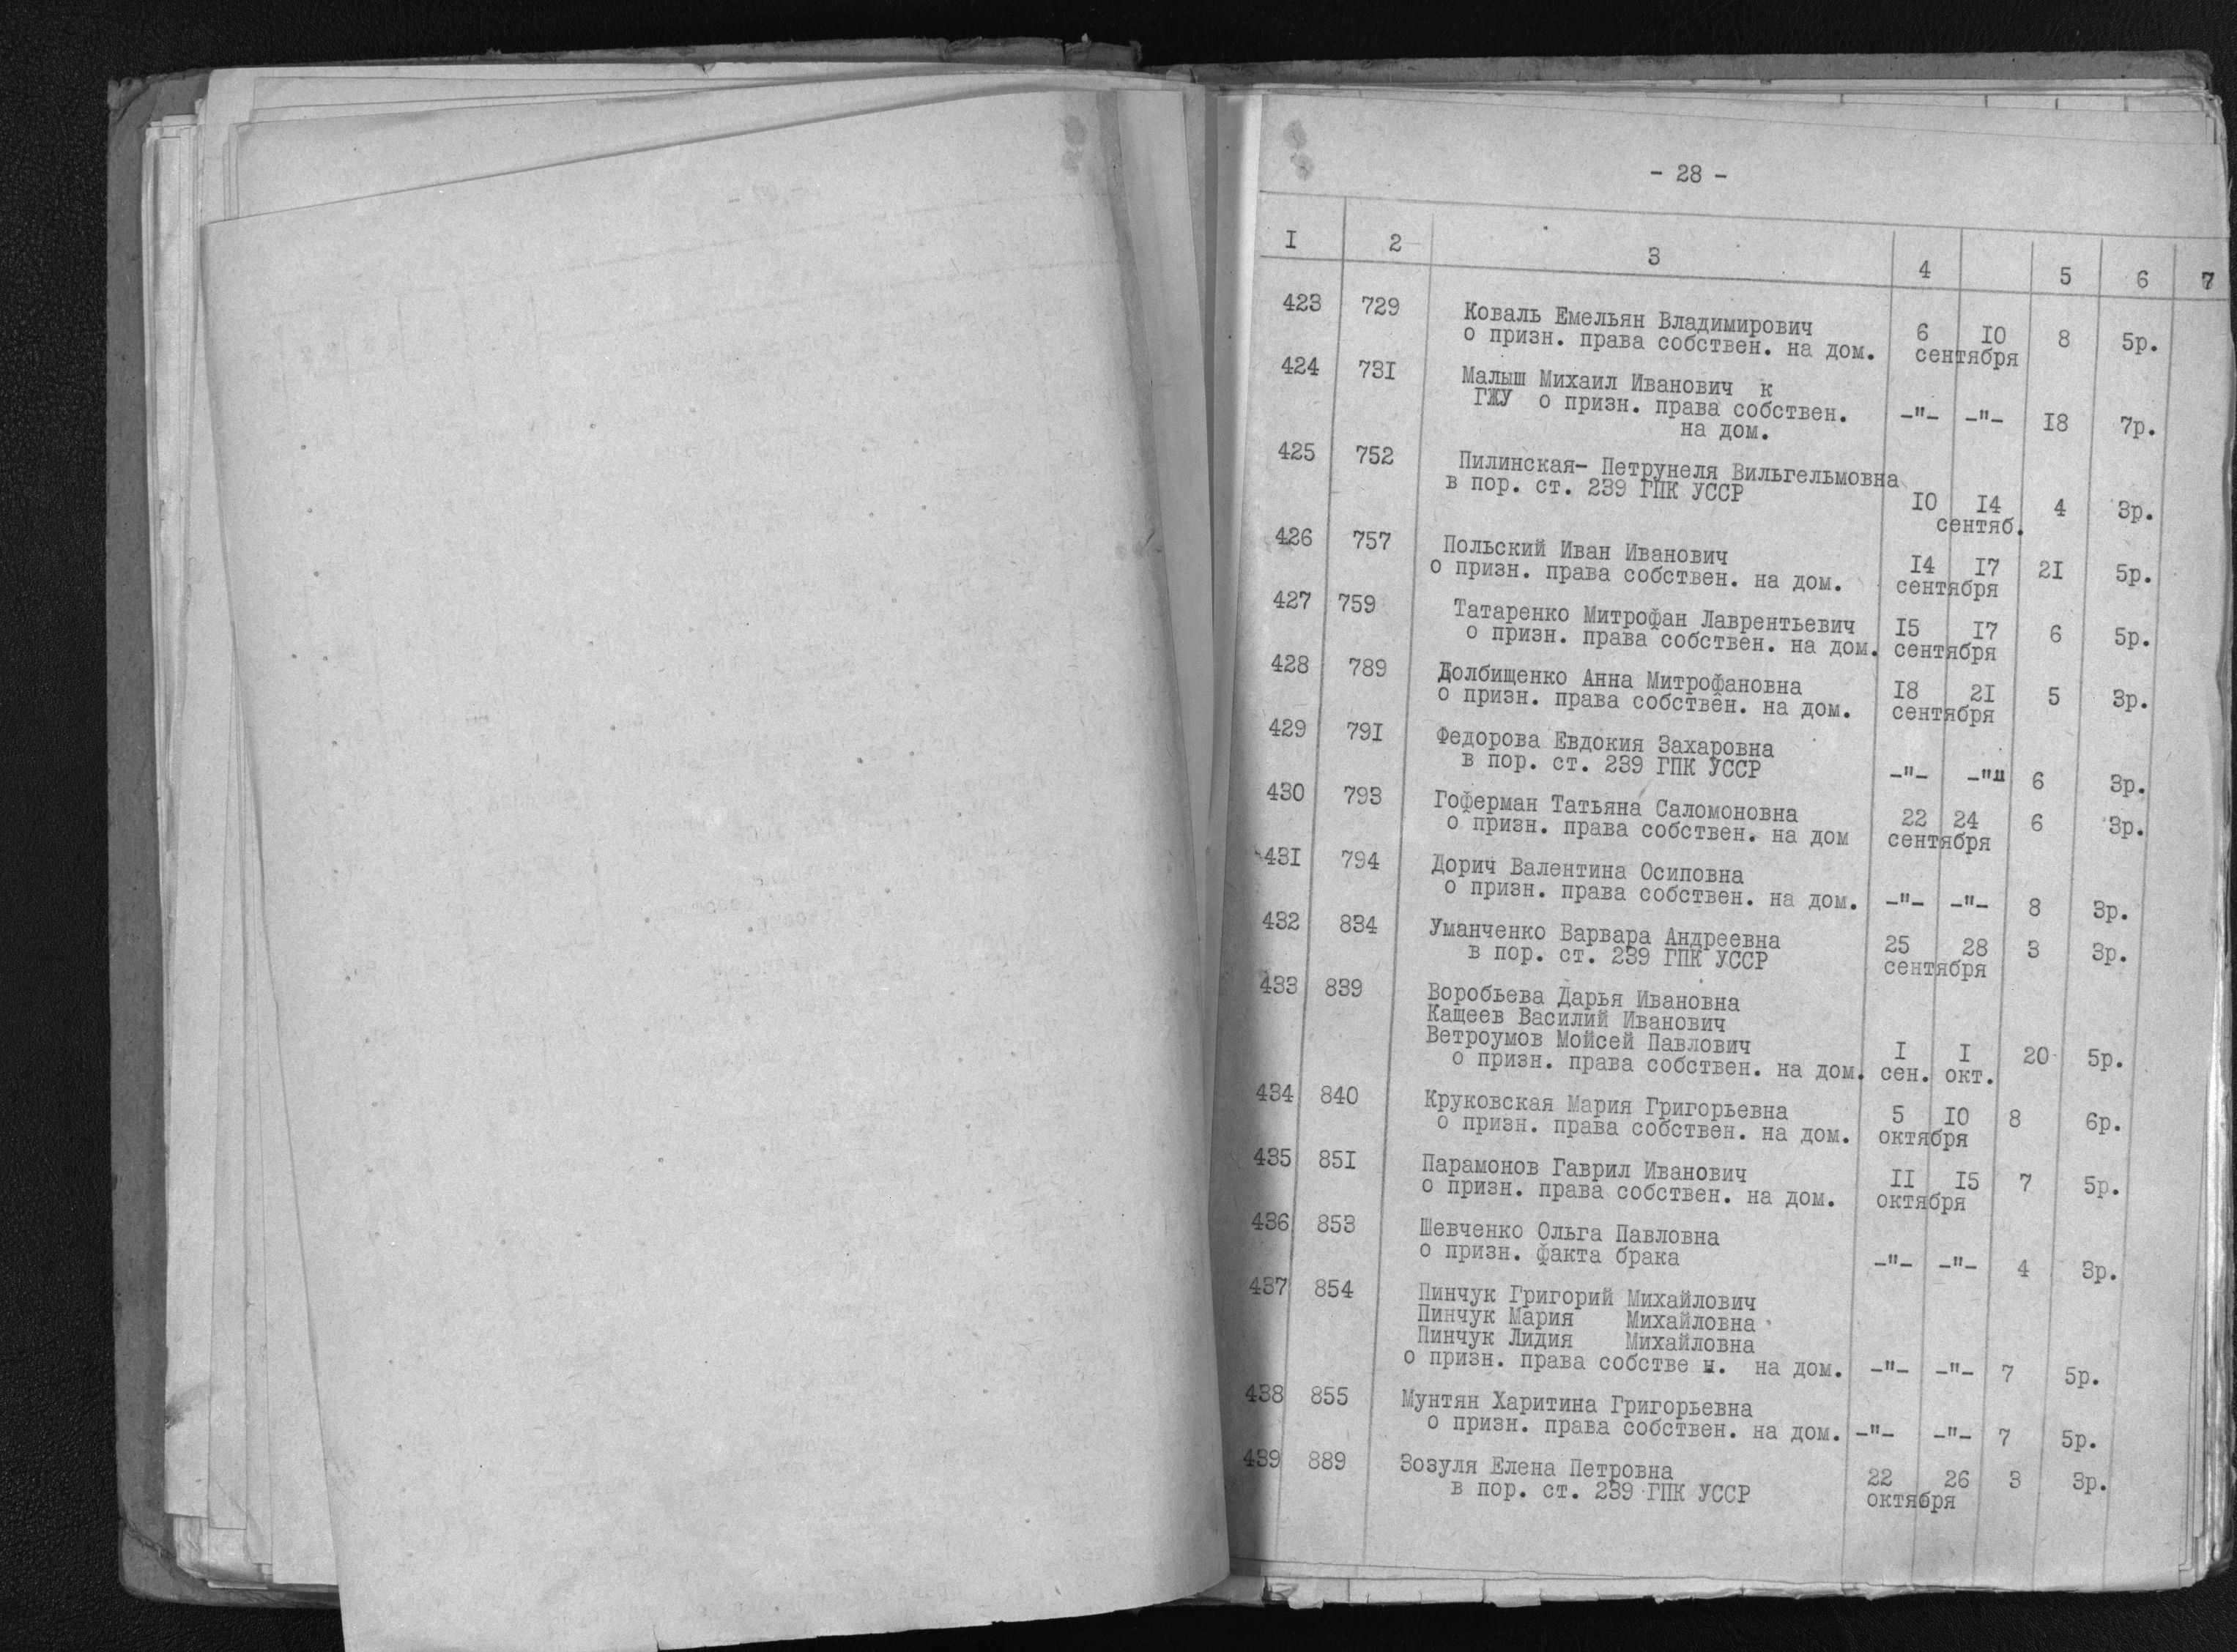 - 28 -
I 2 3 4 5 6 7
423 729 Коваль Емельян Владимирович 6 10 8 5р.
о призн. права собствен. на дом. сентября
424 731 Малыш Михаил Иванович к
ГЖУ о призн. права собствен. -"- -"- 18 7р.
на дом.
425 752 Пилинская- Петрунеля Вильгельмовна
в пор. ст. 239 ГПК УССР 10 14 4 3р.
сентяб.
426 757 Польский Иван Иванович 14 17 21 5р.
о призн. права собствен. на дом. сентября
427 759 Татаренко Митрофан Лаврентьевич 15 17 6 5р.
о призн. права собствен. на дом. сентября
428 789 Долбищенко Анна Митрофановна 18 21 5 3р.
о призн. права собствен. на дом. сентября
429 791 Федорова Евдокия Захаровна
в пор. ст. 239 ГПК УССР -"- -"- 6 3р.
430 793 Гоферман Татьяна Саломоновна 22 24 6 3р.
о призн. права собствен. на дом сентября
431 794 Дорич Валентина Осиповна
о призн. права собствен. на дом. -"- -"- 8 3р.
432 834 Уманченко Варвара Андреевна 25 28 3 3р.
в пор. ст. 239 ГПК УССР сентября
433 839 Воробьева Дарья Ивановна
Кащеев Василий Иванович
Ветроумов Мойсей Павлович I I 20 5р.
о призн. права собствен. на дом. сен. окт.
434 840 Круковская Мария Григорьевна 5 10 8 6р.
о призн. права собствен. на дом. октября
435 851 Парамонов Гаврил Иванович II 15 7 5р.
о призн. права собствен. на дом. октября
436 853 Шевченко Ольга Павловна
о призн. факта брака -"- -"- 4 3р.
437 854 Пинчук Григорий Михайлович
Пинчук Мария Михайловна
Пинчук Лидия Михайловна
о призн. права собстве н. на дом. -"- -"- 7 5р.
438 855 Мунтян Харитина Григорьевна
о призн. права собствен. на дом. -"- -"- 7 5р.
439 889 Зозуля Елена Петровна 22 26 3 3р.
в пор. ст. 239 ГПК УССР октября